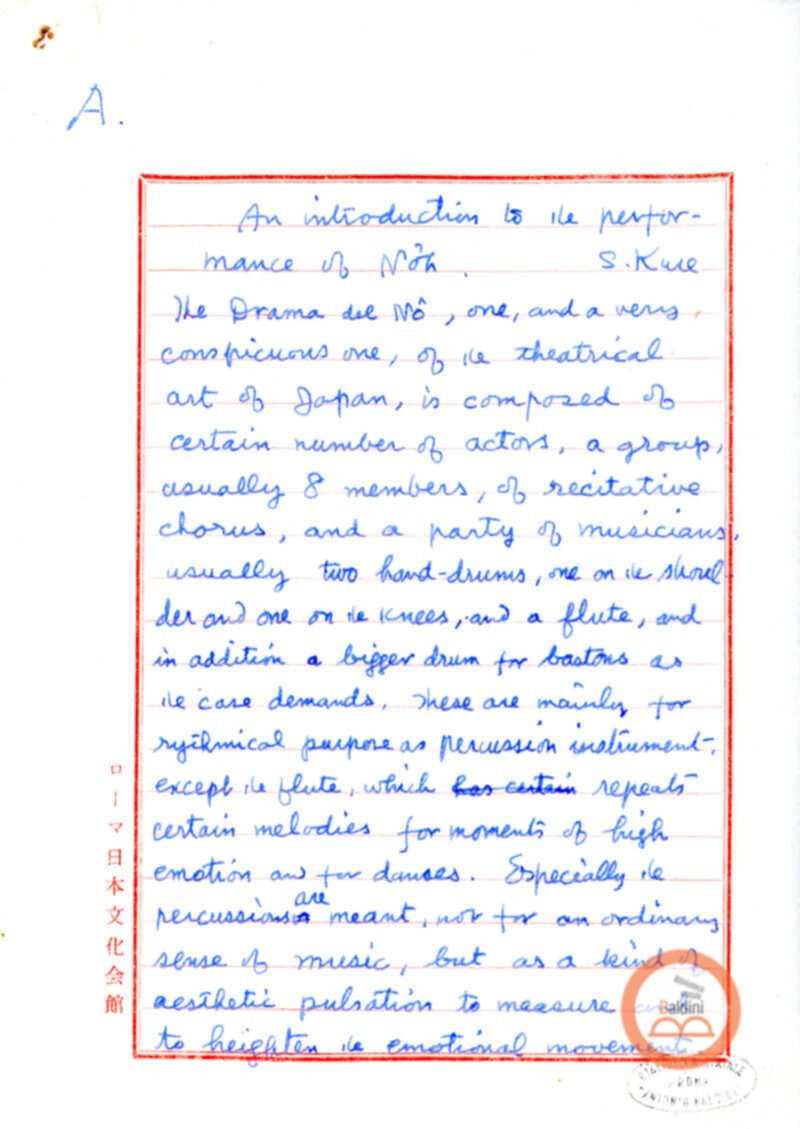 A.
An introduction to the perfor-
mance of Nôh.
S. Kuse
The Drama del Nô, one, and a very
conspicuous one, of the theatrical
art of Japan, is composed of
certain number of actors, a group,
usually 8 members, of recitative
chorus, and a party of musicians,
usually two hand-drums, one on the shoul-
der and one on the knees, and a flute, and
in addition a bigger drum for bastons as
the case demands. These are mainly for
rythmical purpose as percussion instrument,
except the flute, which has certain repeats
certain melodies for moments of high
emotion and for danses. Especially the
percussions are meant, not for an ordinary
sense of music, but as a kind of
aesthetic pulsation to measure and
to heighten the emotional movement
ローマ日本文化会館
Biblioteca
statale
Baldini
ROMA